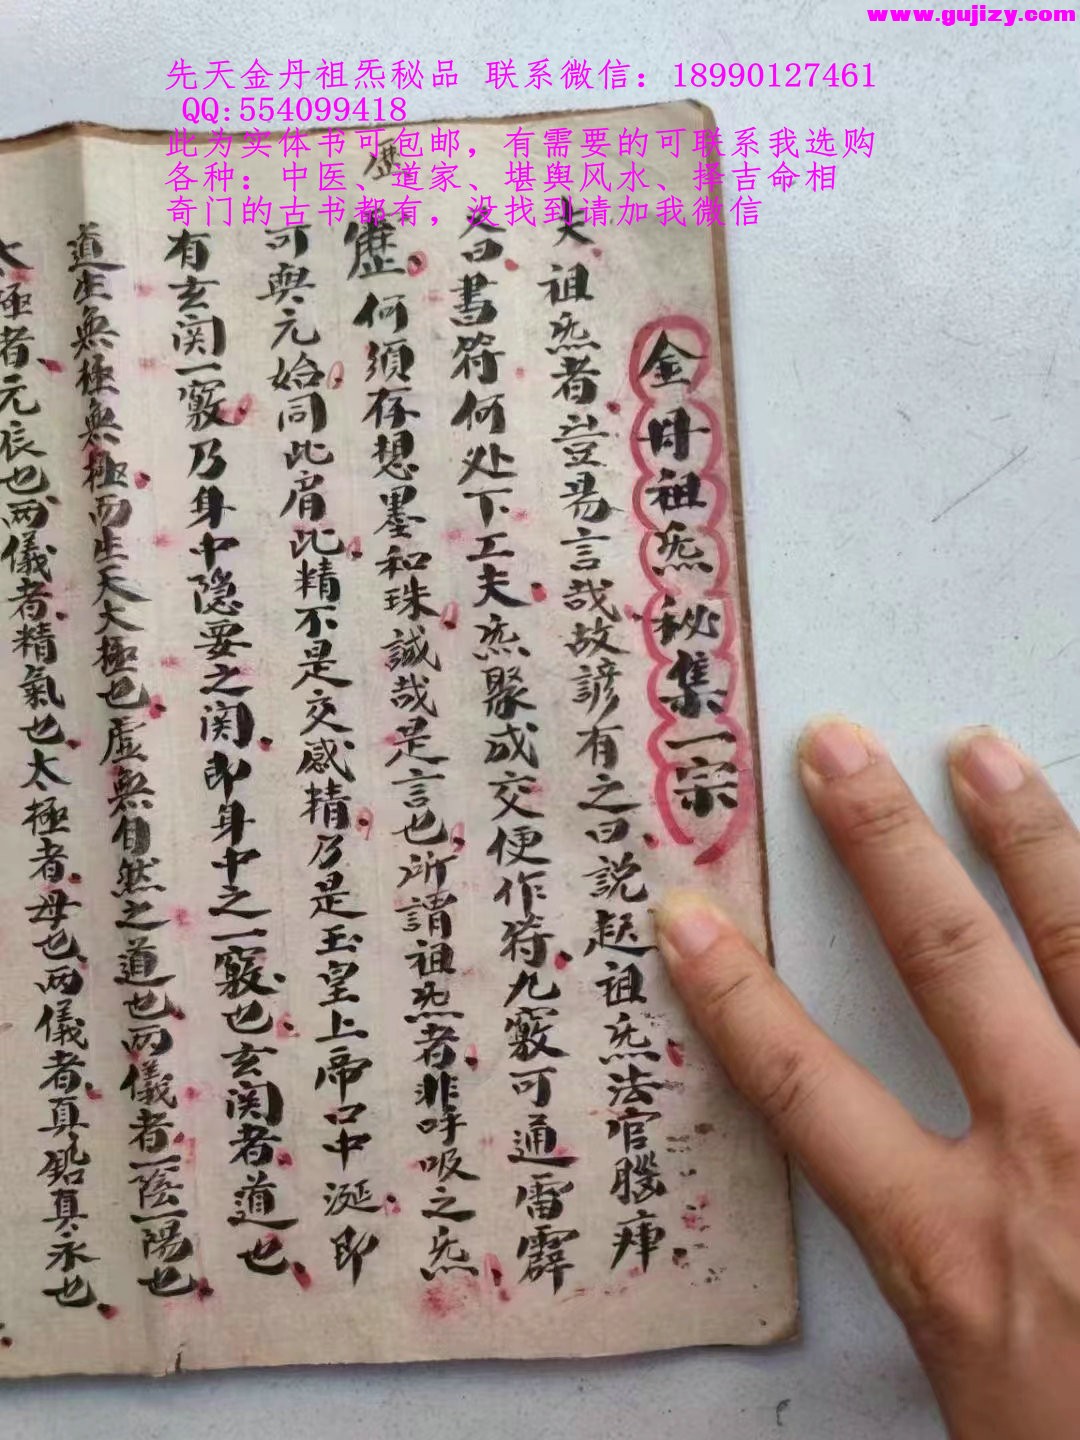 www.gujizy.com
先天金丹祖炁秘品 联系微信：18990127461
QQ:554099418
此为实体书可包邮，有需要的可联系我选购
各种：中医、道家、堪舆风水、择吉命相
奇门的古书都有，没找到请加我微信
金丹祖炁秘集一宗
夫祖炁者豈易言哉故諺有之曰説起祖炁法官腦痺
又曰書符何处下工夫炁聚成交便作符九竅可通雷霹
歷何須存想墨和珠誠哉是言也所謂祖炁者非呼吸之炁
可與元始同此肩此精不是交感精乃是玉皇上帝口中涎即
有玄関一竅乃身中隐要之関即身中之一竅也玄関者道也
道生無極無極而生天大極也虚無自然之道也两儀者一陰一陽也
太極者元辰也两儀者精氣也太極者母也两儀者真鉛真永也
歷